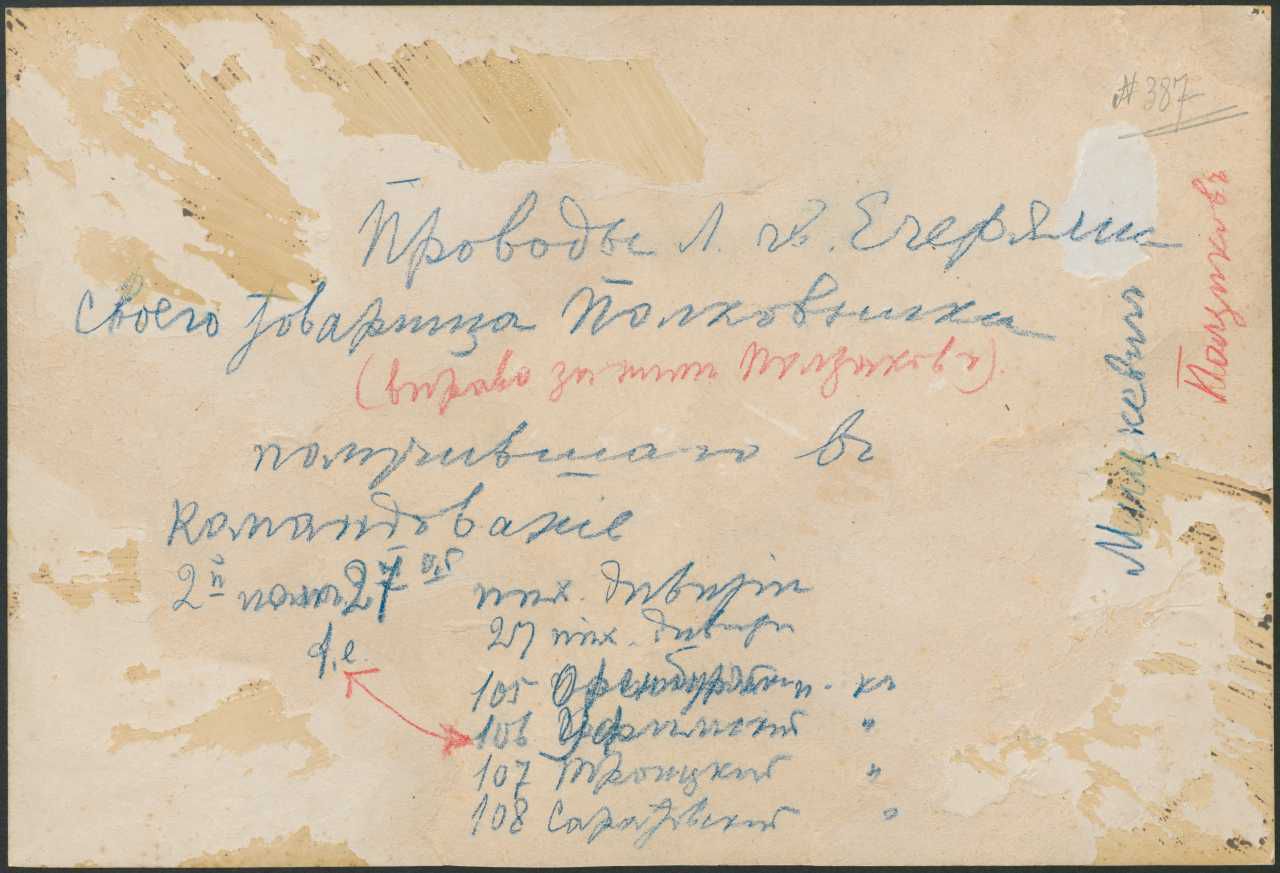 № 387
Проводы Л. Гв. Егерями
своего товарища Полковника
(вправо за ним Ползиков)
получившаго въ
командованіе
2й полкъ 27ой пех. дивизіи
т.е.
27 пех. дивизи
105 Оренбургский п. къ
106 Уфимский "
107 Троицкий "
108 Саратовский "
Мицкевичъ